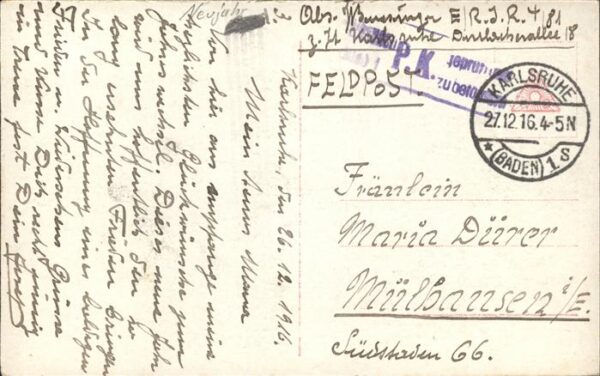 Neujahr
Abs. III R.I.R. 4/81
z. Zt. Karlsruhe Durlacherallee 18
P.K.
FELDPOST
KARLSRUHE
27.12.16. 4-5N
(BADEN) 1S
Fräulein
Maria Dürer
Mülhausen i/E.
Südstaden 66.
Karlsruhe, den 26.12.1916.
Mein Maria
Von hier aus empfange meine
herzlichsten Glückwünsche zum
Jahreswechsel. Dieses neue Jahr
wird uns hoffentlich den so
lang ersehnten Frieden bringen
In der Hoffnung eines baldigen
Friedens u. Wiedersehens Grüsse
und Küsse Dich recht innig
in Treue fest Dein Josef